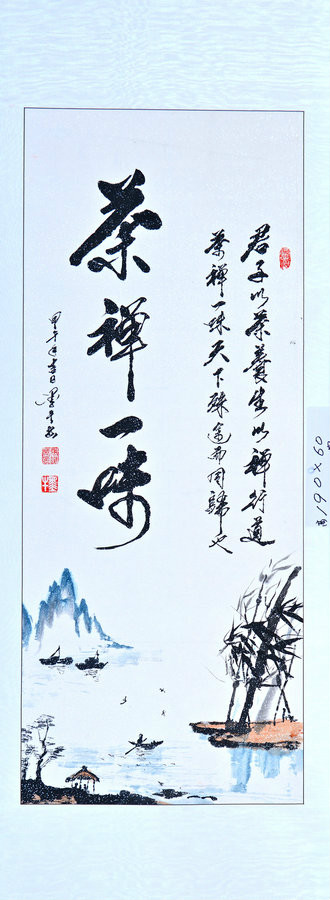 君子以茶養生以禅行道
茶禅一味天下殊途而同歸也
茶禅一味
甲午年春日
190×60